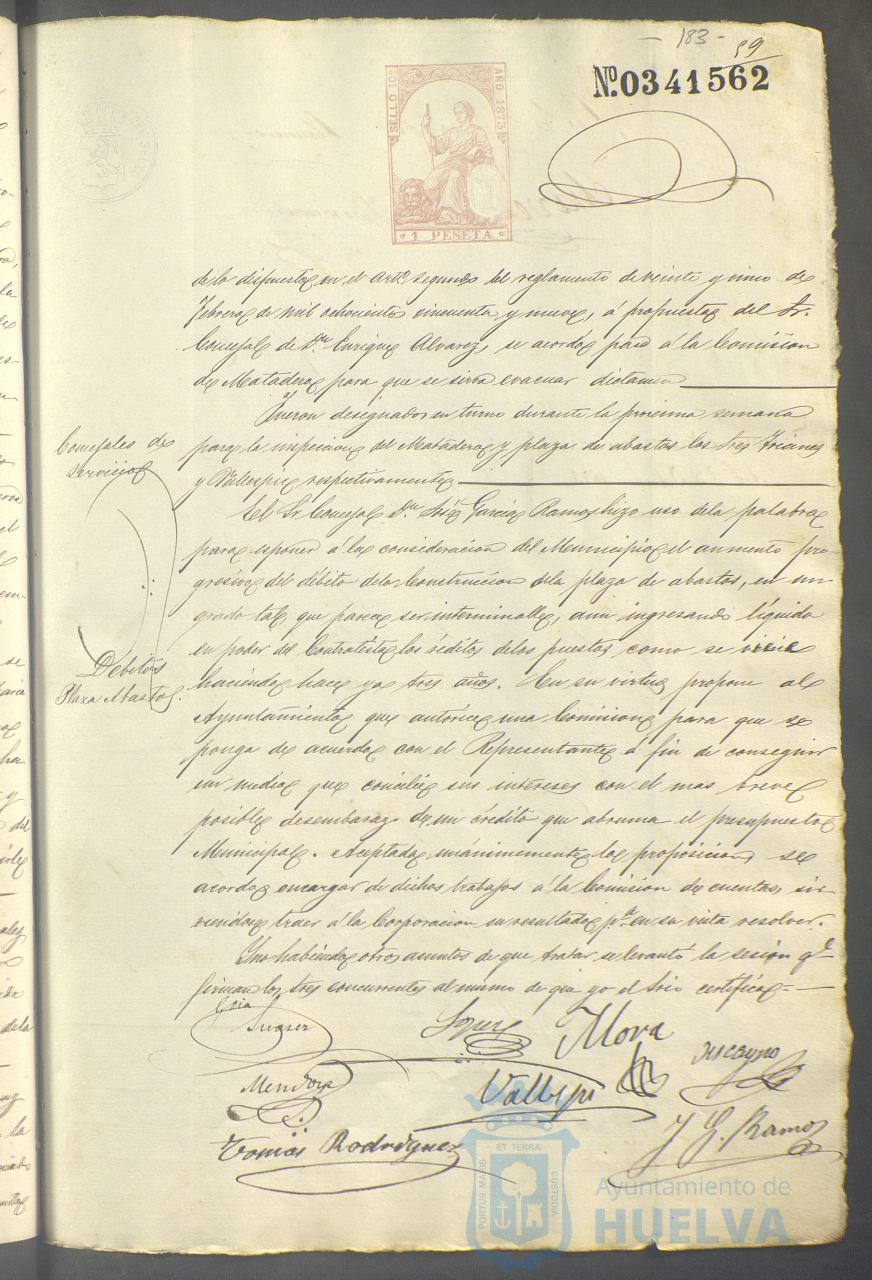 - 183 -
59
Nº. 0341562
SELLO 10º
AÑO 1873
1 PESETA
de lo dispuesto en el artº segundo del reglamento de veinte y cinco de
Febrero de mil ochocientos cincuenta y nueve, á propuesta del Sr.
Concejal Dn. Enrique Alvarez, se acordó pase á la Comision
de Matadero para que se sirva evacuar dictamen
Fueron designados en turno durante la proxima semana
Concejales de
servicio
para la inspeccion del Matadero y plaza de abastos los Sres
y Vallespin respectivamente
El Sr. Concejal Dn. José Garcia Ramos hizo uso de la palabra
para esponer á la consideracion del Municipio el aumento pro-
gresivo del débito de la Construccion de la plaza de abastos, en un
grado tal que parece ser interminable, aun ingresando líquido
en poder del Contratista los réditos de los puestos como se viene
Débitos
Plaza Abastos.
haciendo hace ya tres años. En su virtud propone al
Ayuntamiento que autorice una Comision para que se
ponga de acuerdo con el Representante á fin de conseguir
un medio que concilie sus intereses con el mas breve
posible desembarazo de un crédito que abruma el presupuesto
Municipal. Aceptada unánimemente la proposicion se
acordó encargar de dichos trabajos á la Comision de cuentas, sir-
viendose traer á la Corporacion su resultado pª. en su vista resolver.
Y no habiendo otros asuntos de que tratar se levantó la sesion qe.
firman los Sres concurrentes al mismo de que yo el Srio certifico.
Suarez
Lopez
Mora
Mendoza
Vallespin
Tomás Rodriguez
J G. Ramos
PORTUS MARIS
ET TERRÆ
CUSTODIA
Ayuntamiento de
HUELVA